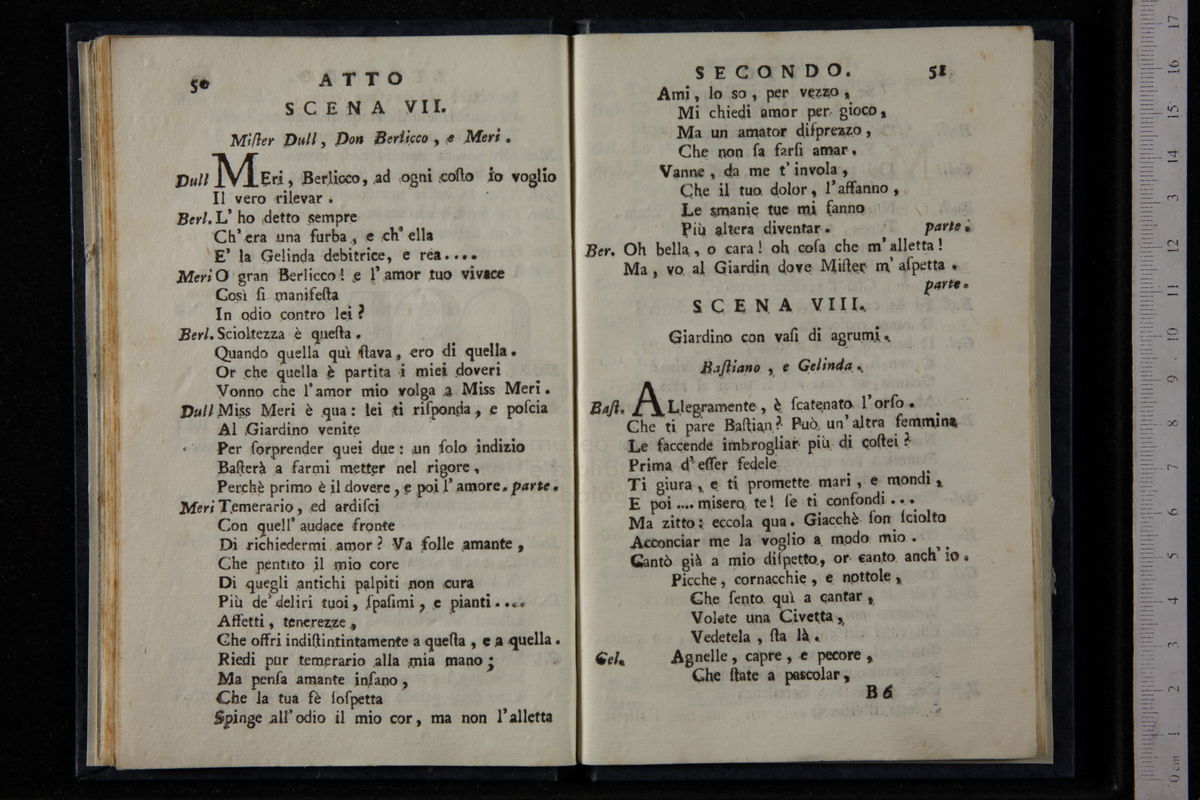 50 ATTO
SCENA VII.
Miſter Dull, Don Berlicco, e Meri.
Dull MEri, Berlicco, ad ogni coſto io voglio
Il vero rilevar.
Berl. L' ho detto sempre
Ch' era una furba, e ch' ella
E' la Gelinda debitrice, e rea....
Meri O gran Berlicco! e l' amor tuo vivace
Così ſi manifeſta
In odio contro lei?
Berl. Scioltezza è queſta.
Quando quella quì ſtava, ero di quella.
Or che quella è partita i miei doveri
Vonno che l' amor mio volga a Miss Meri.
Dull Miss Meri è qua: lei ti riſponda, e poſcia
Al Giardino venite
Per ſorprender quei due: un ſolo indizio
Baſterà a farmi metter nel rigore,
Perchè primo è il dovere, e poi l' amore. parte.
Meri Temerario, ed ardiſci
Con quell' audace fronte
Di richiedermi amor? Va folle amante,
Che pentito il mio core
Di quegli antichi palpiti non cura
Più de' deliri tuoi, ſpaſimi, e pianti....
Affetti, tenerezze,
Che offri indiſtintintamente a queſta, e a quella.
Riedi pur temerario alla mia mano;
Ma penſa amante inſano,
Che la tua fè ſoſpetta
Spinge all' odio il mio cor, ma non l' alletta
SECONDO. 51
Ami, lo so, per vezzo,
Mi chiedi amor per gioco,
Ma un amator diſprezzo,
Che non ſa farſi amar.
Vanne, da me t' invola,
Che il tuo dolor, l' affanno,
Le smanie tue mi fanno
Più altera diventar. parte.
Ber. Oh bella, o cara! oh coſa che m' alletta!
Ma, vo al Giardin dove Miſter m' aſpetta.
parte.
SCENA VIII.
Giardino con vaſi di agrumi.
Baſtiano, e Gelinda.
Baſt. ALlegramente, è ſcatenato l' orſo.
Che ti pare Baſtian? Può un' altra femmina
Le faccende imbrogliar più di coſtei?
Prima d' eſſer fedele
Ti giura, e ti promette mari, e mondi,
E poi.... misero te! ſe ti confondi...
Ma zitto: eccola qua. Giacchè ſon ſciolto
Acconciar me la voglio a modo mio.
Cantò già a mio diſpetto, or canto anch' io.
Picche, cornacchie, e nottole,
Che ſento quì a cantar,
Volete una Civetta,
Vedetela, ſta là.
Gel. Agnelle, capre, e pecore,
Che ſtate a pascolar,
B 6